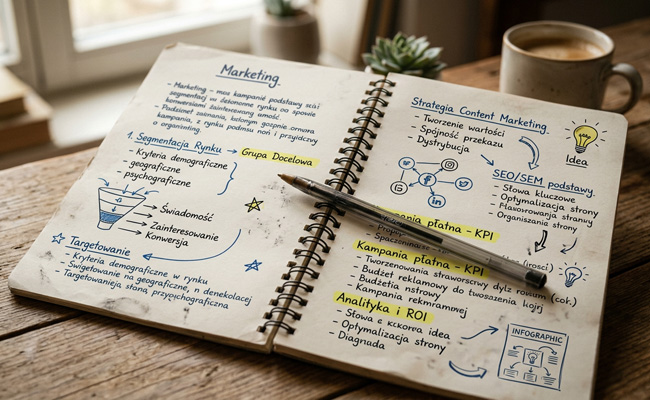 Marketing
- Marketing - mas kampanie podstawy stat
segmentacji w zekonone rynku do spowie
konwersioni zainteresowaną umość.
- Podzinet zainania, kolonym gospnie.omora
kampanii, z rynku podsinu noñ i przyjdzincy
o organinting.
1. Segmentacja Rynku
Grupa Docelowa
- Kryteria demograficzne
- geograficzne
psychograficzne
Świadomość
Zainteresowanie
Konwersja
Targetowanie
- Kryteria demograficzne w rynku
- Swigetowanie na geograficzne, n denekolacej
- Targetowanieja stona, przyichograficzna
Strategia Content Marketing
- Tworzenie wartości
- Spójność przekazu
- Dystrybucja
Idea
G
f
in
SEO/SEM podstawy.
- Słowa kluczowe
- Optymalizacja strony
- Flavorowanja stranvy
- Organizania stony
płatna - KPI
Kampania płatna - KPI
- Tworzenowania straworscwy dylz robium (cok.)
- Budżet reklamowy do twoszenia kojrj
- Budżetia nstrowy
- Kampania rekmrarmej
Analityka i ROI
- Słowa e kckorea idea
- Optymalizacja strony
- Diagnuda
INFOGRAPHIC